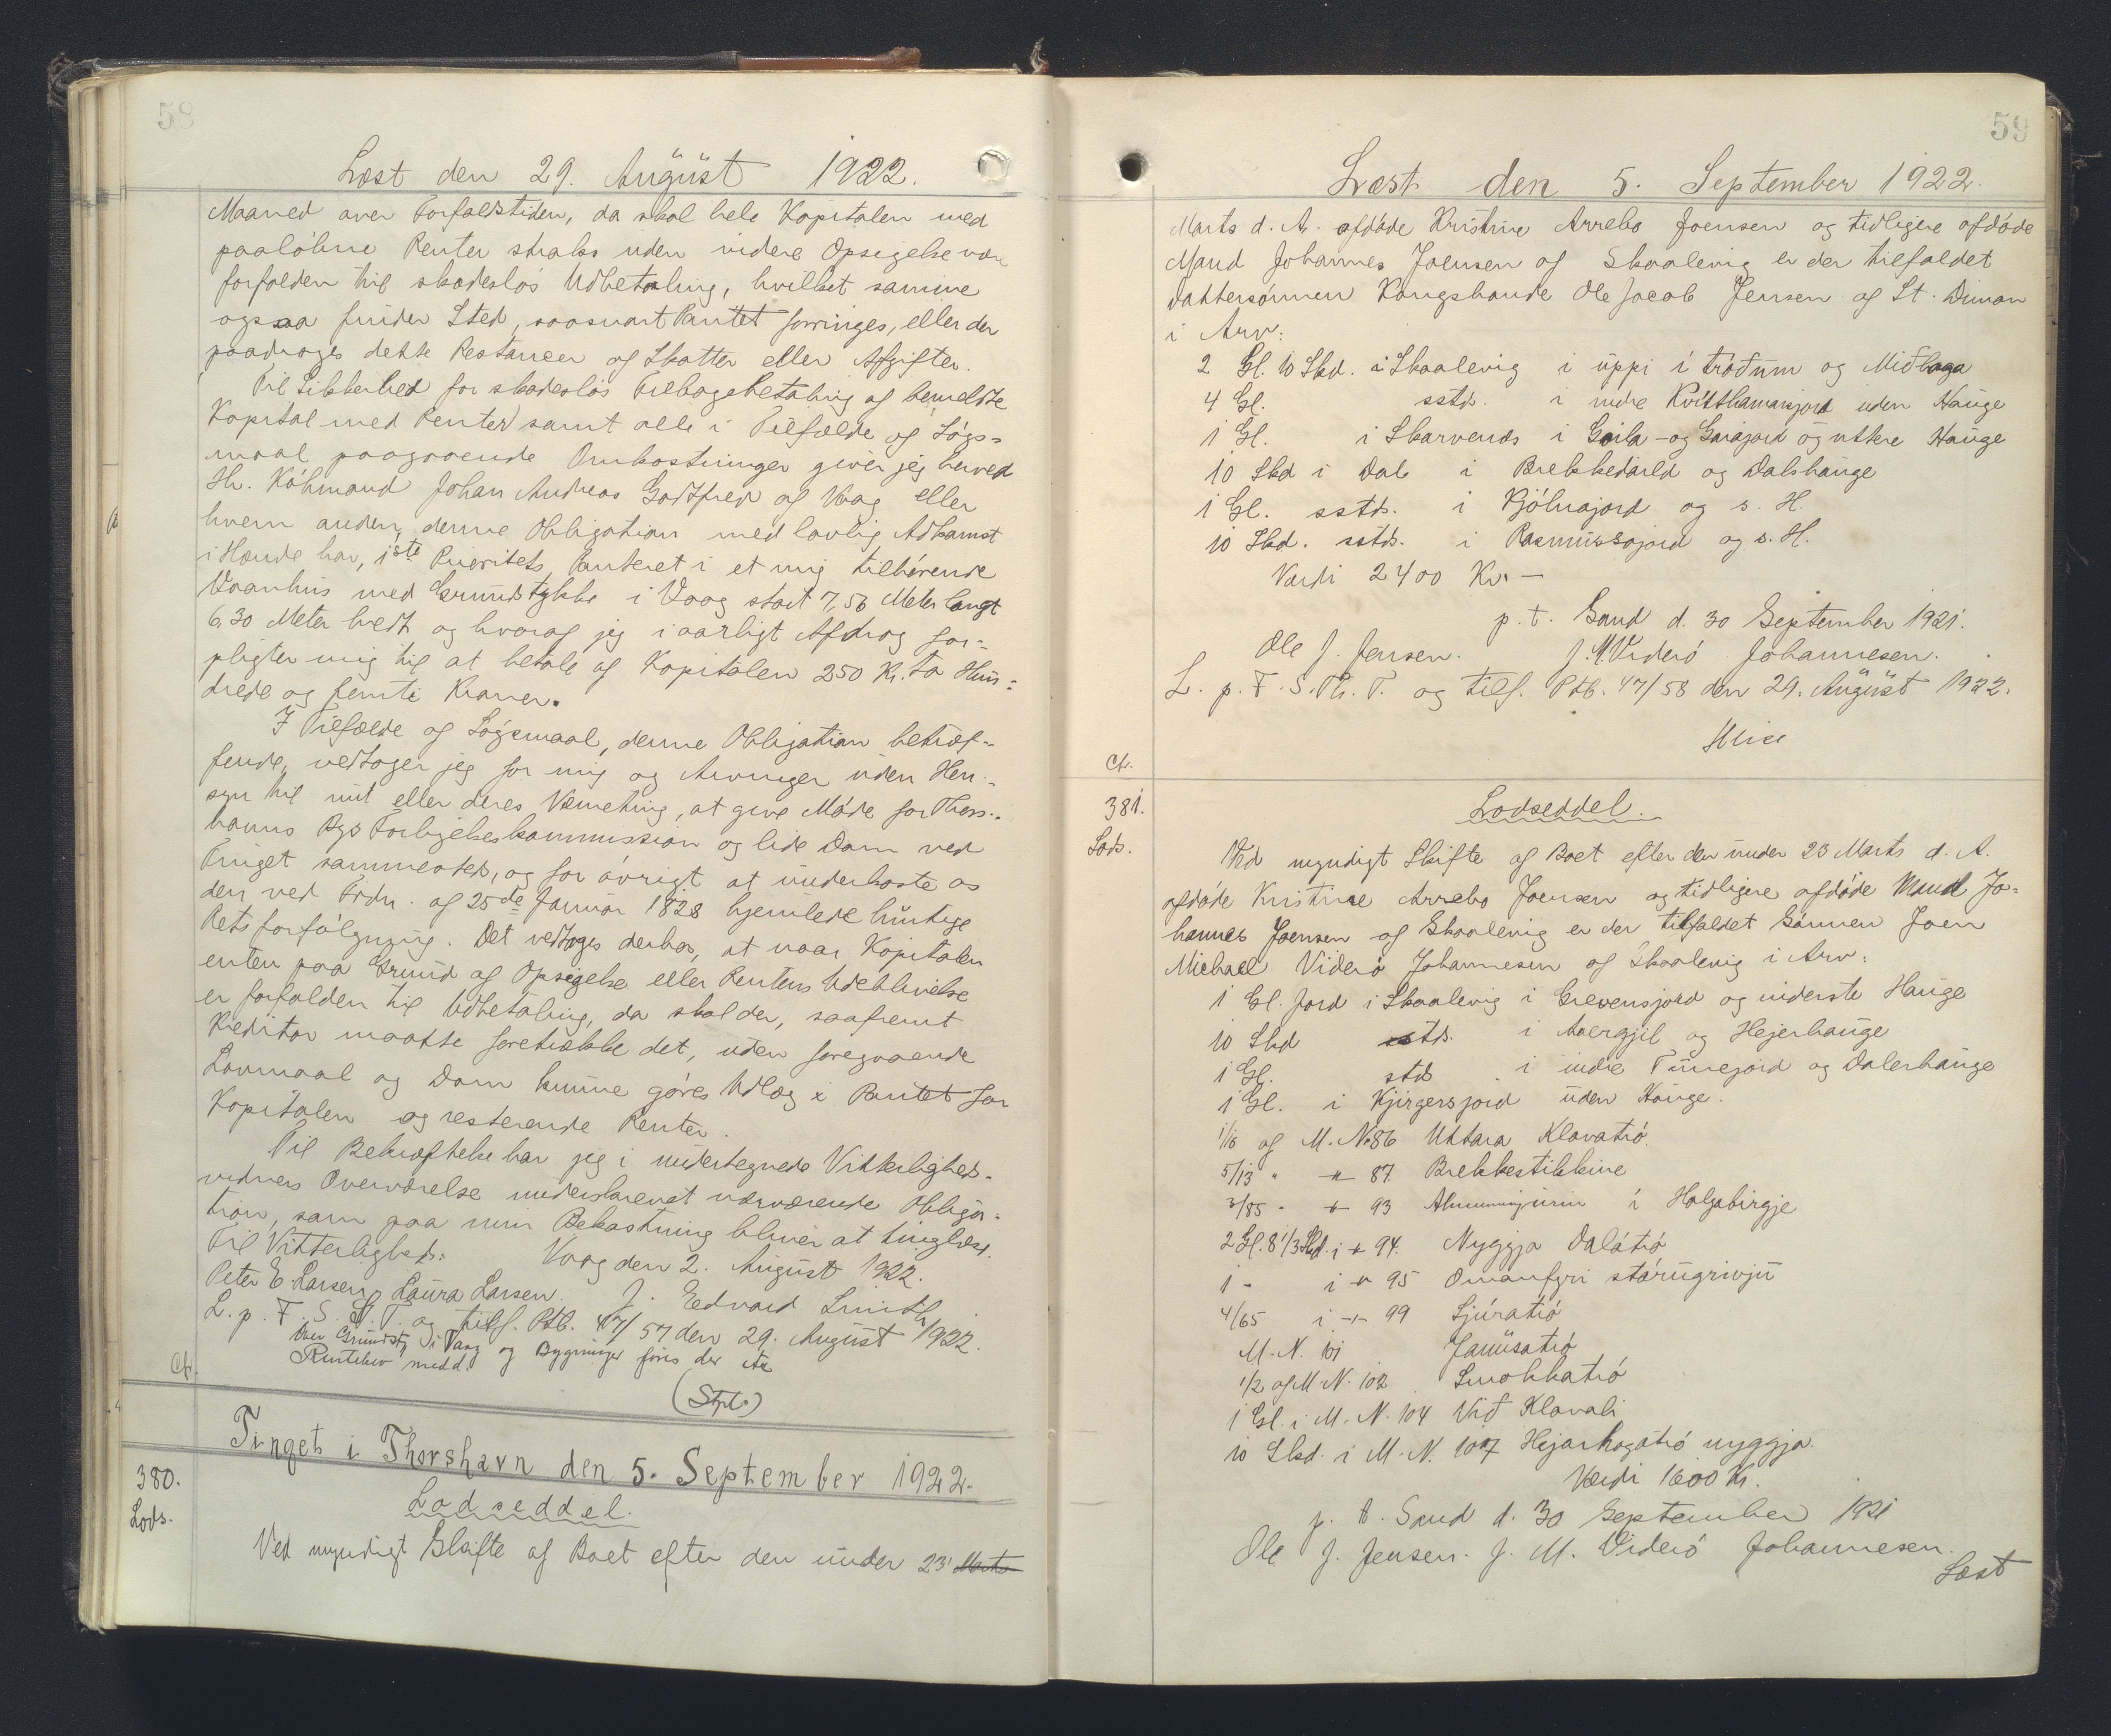 58
Læst den 29. August 1922.
Maaned over Forfaldstiden, da skal hele Kapitalen med
paaløbne Renter straks uden videre Opsigelse være
forfalden til skadesløs Udbetaling, hvilket samme
ogsaa finder Sted, saasnart Pantet forringes, eller der
paadrages dette Restancer og Skatter eller Afgifter.
Til Sikkerhed for skadesløs Tilbagebetaling af bemeldte
Kapital med Renter samt alle i Tilfælde af Søgs=
maal paagaaende Omkostninger giver jeg herved
Hr. Købmand Johan Andreas Godtfred af Vaag eller
hvem anden, denne Obligation med lovlig Adkomst
i Hænde har, 1ste Prioritets Panteret i et mig tilhørende
Vaanhus med Grundstykke i Vaag stort 7,56 Meter langt
6,30 Meter bredt og hvoraf jeg i aarligt Afdrag for=
pligter mig til at betale af Kapitalen 250 Kr. to Hun=
drede og femti Kroner.
I Tilfælde af Søgsmaal, denne Obligation betræf=
fende, vedtager jeg for mig og Arvinger uden Hen=
syn til mit eller deres Værneting, at give Møde for Thors=
havns Bys Forligelseskommission og lide Dom ved
Tinget sammesteds, og for øvrigt at underkaste os
den ved Frdn. af 25de Januar 1828 hjemlede hurtige
Retsforfølgning. Det vedtages derhos, at naar Kapitalen
enten paa Grund af Opsigelse eller Rentens Udeblivelse
er forfalden til Udbetaling, da skal der, saafremt
Kreditor maatte foretrække det, uden foregaaende
Lovmaal og Dom kunne gøres Udlæg i Pantet for
Kapitalen og resterende Renter.
Til Bekræftelse har jeg i undertegnede Vitterligheds=
vidners Overværelse underskrevet nærværende Obliga=
tion, som paa min Bekostning bliver at tinglæse.
Til Vitterlighed: Vaag den 2. August 1922.
Peter E. Larsen, Laura Larsen. J. Edvard Smith
L. p. F. S. Th. T. og tilf. Ptb. 47/57 den 29. August 1922.
Over Grundst. i Vaag og Bygninger føres der
Rentebev medd.
Cf.
(Stpl.)
Tinget i Thorshavn den 5. September 1922.
380.
Lods.
Lodseddel.
Ved myndigt Skifte af Boet efter den under 23 Marts
59
Læst den 5. September 1922.
Marts d. A. afdøde Kristine Arrebo Joensen og tidligere afdøde
Mand Johannes Joensen af Skaalevig er der tilfaldet
Dattersønnen Kongsbonde Ole Jacob Jensen af St. Dimon
i Arv:
2 Gl. 10 Skd. i Skaalevig i uppi í tróðum og Miðhaga
4 Gl. sstds. i indre Kvitthamarsjord uden Hauge
1 Gl. i Skarvenæs i Goila- og Garajord og uttere Hauge
10 Skd i Dal i Brekkedæld og Dalshauge
1 Gl. sstds. i Kjølnajord og s. H.
10 Skd. sstds. i Rasmussajord og s. H.
Værdi 2400 Kr. —
p. t. Sand d. 30 September 1921.
Ole J. Jensen. J. M. Viderö Johannesen.
L. p. F. S. Th. T. og tilf. Ptb. 47/58 den 29. August 1922.
Cf.
381.
Lods.
Lodseddel.
Ved myndigt Skifte af Boet efter den under 23 Marts d. A.
afdøde Kristine Arrebo Joensen og tidligere afdøde Mand Jo=
hannes Joensen af Skaalevig er der tilfaldet Sønnen Joen
Michael Viderö Johannesen af Skaalevig i Arv:
1 Gl. Jord i Skaalevig i Grevensjord og niderste Hauge
10 Skd sstds. i Aaergjil og Hejerhauge
1 Gl. stds i indre Tunejord og Dalerhauge
1 Gl. i Kjirgersjord uden Hauge.
1/18 af M. N. 86 Uttara Klovatró.
5/13 " -"- 87 Brekkestikkine
3/85 " -"- 93 Almenningurin í Holgabirgje
2 Gl. 8 1/3 Skd. i -"- 94. Nyggja Dalátró
1 - i -"- 95 Omanfyri stórugrivju
4/65 i -"- 99 Sjúrátró
M. N. 101 Janusatró
1/2 af M. N. 102 Smokkatró
1 Gl. i M. N. 104 Við Klovali
10 Skd. i M. N. 107 Hejarhagatró nyggja.
Værdi 1600 Kr.
p. t. Sand d. 30 September 1921
Ole J. Jensen. J. M. Viderö Johannesen.
Læst